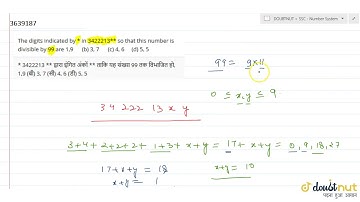 DOUBTNUT >> SSC : Number System
3639187
The digits indicated by * in 3422213** so that this number is
divisible by 99 are 1,9 (b) 3, 7 (c) 4, 6 (d) 5, 5
* 3422213 ** द्वारा इंगित अंकों ** ताकि यह संख्या 99 तक विभाजित हो,
1,9 (बी) 3, 7 (सी) 4, 6 (डी) 5, 5
99 = 9×11
0 ≤ x,y ≤ 9
34 222 13 x y
3+4+2+2+2+1+3+x+y = 17+x+y = 0, 9, 18, 27
17+x+y = 18
x+y = 10
x+y = 1
doubtnut